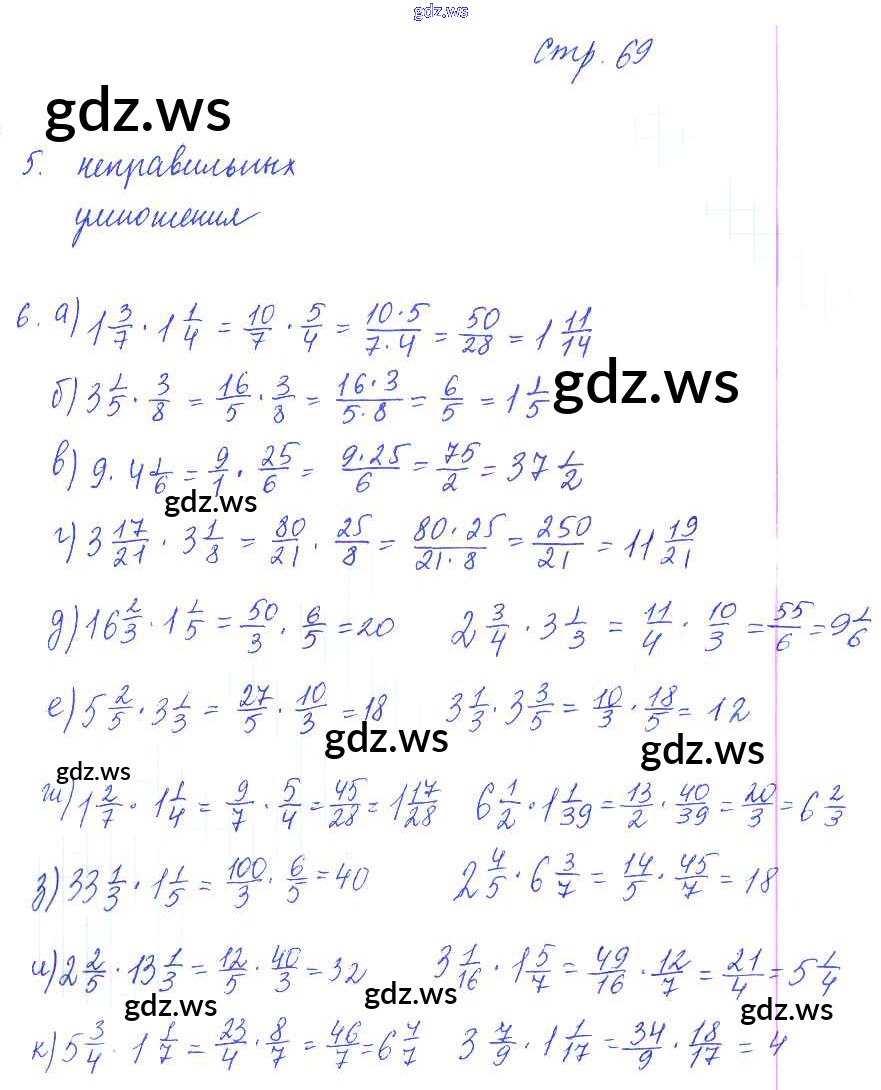 gdz.ws
стр. 69
gdz.ws
5. неправильных
умножения
6. а) 1 3/7 · 1 1/4 = 10/7 · 5/4 = 10·5/7·4 = 50/28 = 1 11/14
б) 3 1/5 · 3/8 = 16/5 · 3/8 = 16·3/5·8 = 6/5 = 1 1/5 gdz.ws
в) 9 · 4 1/6 = 9/1 · 25/6 = 9·25/6 = 75/2 = 37 1/2
gdz.ws
г) 3 17/21 · 3 1/8 = 80/21 · 25/8 = 80·25/21·8 = 250/21 = 11 19/21
д) 16 2/3 · 1 1/5 = 50/3 · 6/5 = 20 2 3/4 · 3 1/3 = 11/4 · 10/3 = 55/6 = 9 1/6
е) 5 2/5 · 3 1/3 = 27/5 · 10/3 = 18 3 1/3 · 3 3/5 = 10/3 · 18/5 = 12
gdz.ws gdz.ws
gdz.ws
ж) 1 2/7 · 1 1/4 = 9/7 · 5/4 = 45/28 = 1 17/28 6 1/2 · 1 1/39 = 13/2 · 40/39 = 20/3 = 6 2/3
з) 33 1/3 · 1 1/5 = 100/3 · 6/5 = 40 2 4/5 · 6 3/7 = 14/5 · 45/7 = 18
и) 2 2/5 · 13 1/3 = 12/5 · 40/3 = 32 3 1/16 · 1 5/7 = 49/16 · 12/7 = 21/4 = 5 1/4
gdz.ws gdz.ws gdz.ws
к) 5 3/4 · 1 1/7 = 23/4 · 8/7 = 46/7 = 6 4/7 3 7/9 · 1 1/17 = 34/9 · 18/17 = 4